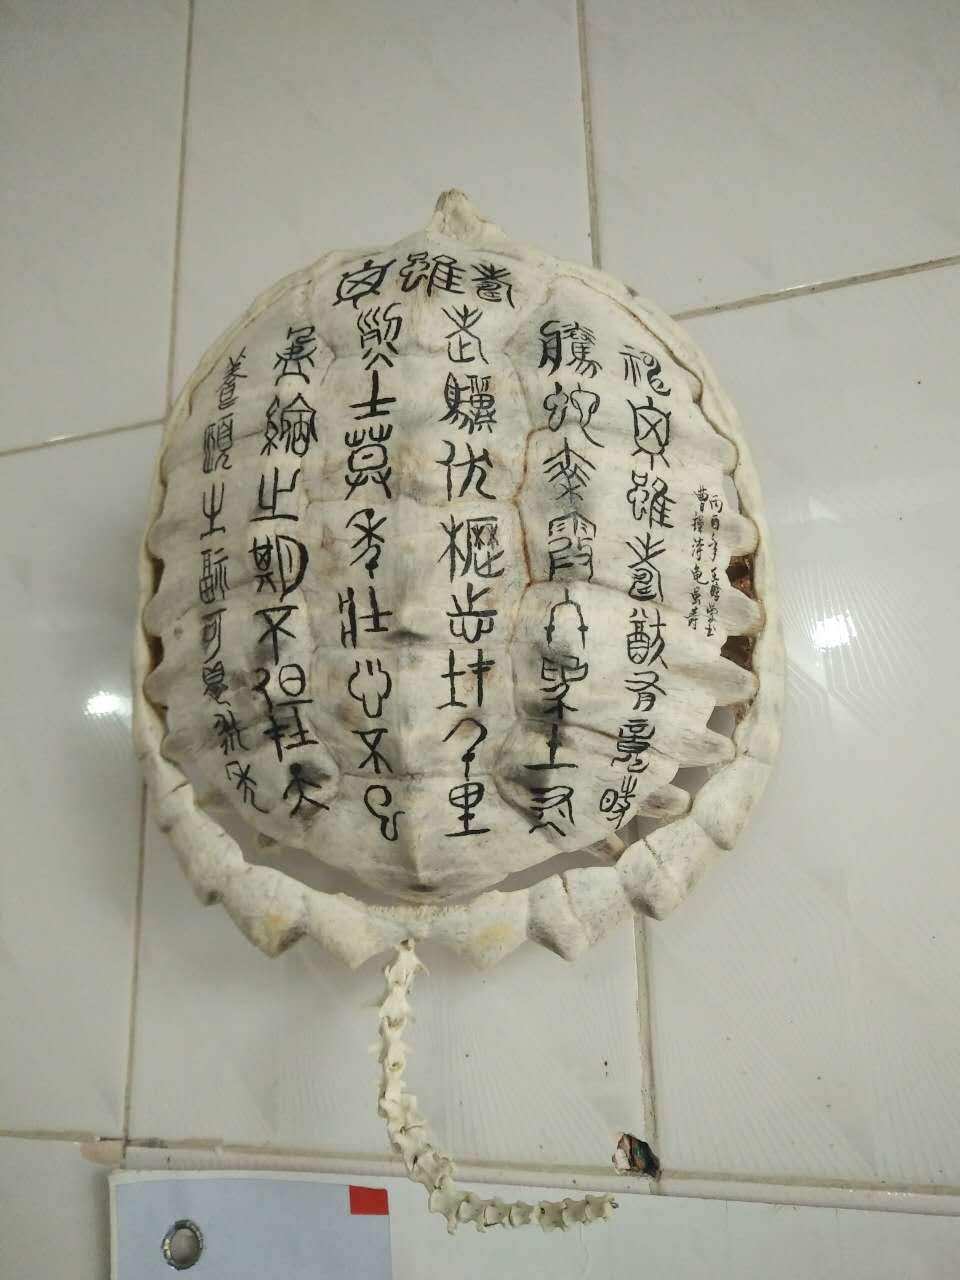 龜雖壽
神龜雖壽猷有竟時
騰蛇乘霧終為土灰
老驥伏櫪志在千里
烈士暮年壯心不已
盈縮之期不但在天
養怡之福可得永年
曹操诗龟虽寿